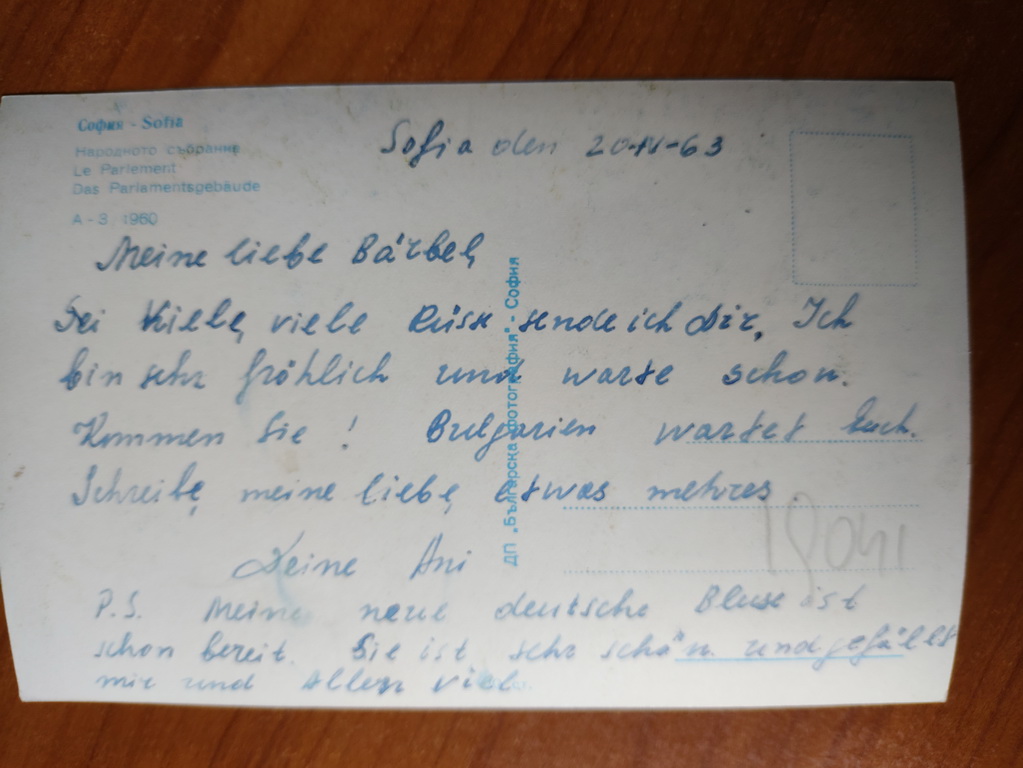 София - Sofia
Народното събрание
Le Parlement
Das Parlamentsgebäude
A - 3, 1960
Sofia den 20-IV-63
Meine liebe Bärbel,
viele Küsse sende ich Dir, Ich
bin sehr fröhlich und warte schon.
Kommen Sie! Bulgarien wartet Euch.
Schreibe, meine liebe, etwas mehres.
Deine Ani
P.S. Meine neue deutsche Bluse ist
schon bereit. Sie ist sehr schön und gefällt
mir und Allen viel.
ДП „Българска фотография" - София
19041